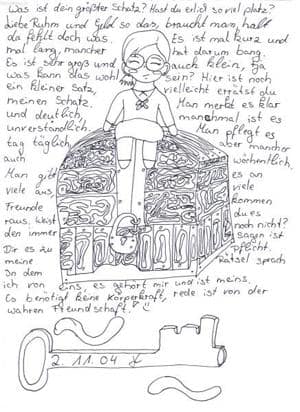 Was ist dein größter Schatz? Hast du erlös so viel platz?
Liebe Ruhm und Geld so das, braucht man, halt
da fehlt doch was. Es ist mal kurz und
mal lang, mancher hat darum bang.
Es ist sehr groß und auch klein, tja
was kann das wohl sein? Hier ist noch
ein kleiner Satz, vielleicht errätst du
meinen Schatz. Man merkt es klar
und deutlich, manchmal ist es
unverständlich. Man pflegt es
tag täglich, aber mancher
auch wöchentlich,
Man gibt es an
viele aus, viele
Freunde kommen
raus. Weist du es
den immer noch nicht?
Dir es zu sagen ist
meine pflicht.
In dem Rätsel sprach
ich von eins, es gehört mir und ist meins.
Es benötigt keine Körperkraft, rede ist von der
wahren Freundschaft.
2. 11. 04